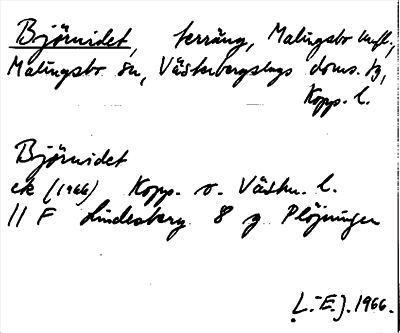 Björnidet, terräng, Malingsbo knfl.,
Malingsbo sn, Västerbergslags doms. tg,
Kopp. l.
Björnidet
ek (1966) Kopp. o. Västm. l.
11 F Lindesberg 8 g Plöjningen
L.-E.J. 1966.